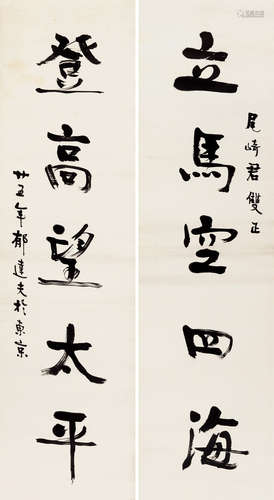 尾崎君雙正
立馬空四海
登高望太平
廿五年郁達夫於東京